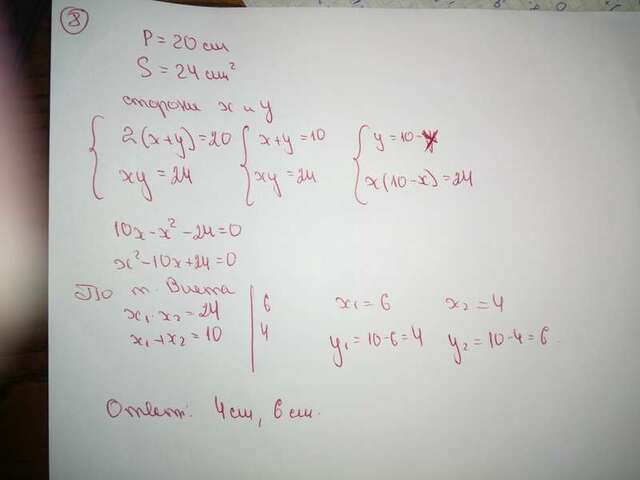 8
P = 20 см
S = 24 см²
стороны x и y
{ 2(x+y) = 20 { x+y = 10 { y = 10-x
{ xy = 24 { xy = 24 { x(10-x) = 24
10x - x² - 24 = 0
x² - 10x + 24 = 0
По т. Виета
x₁ x₂ = 24 | 6 x₁ = 6 x₂ = 4
x₁ + x₂ = 10 | 4 y₁ = 10-6 = 4 y₂ = 10-4 = 6
Ответ: 4 см, 6 см.